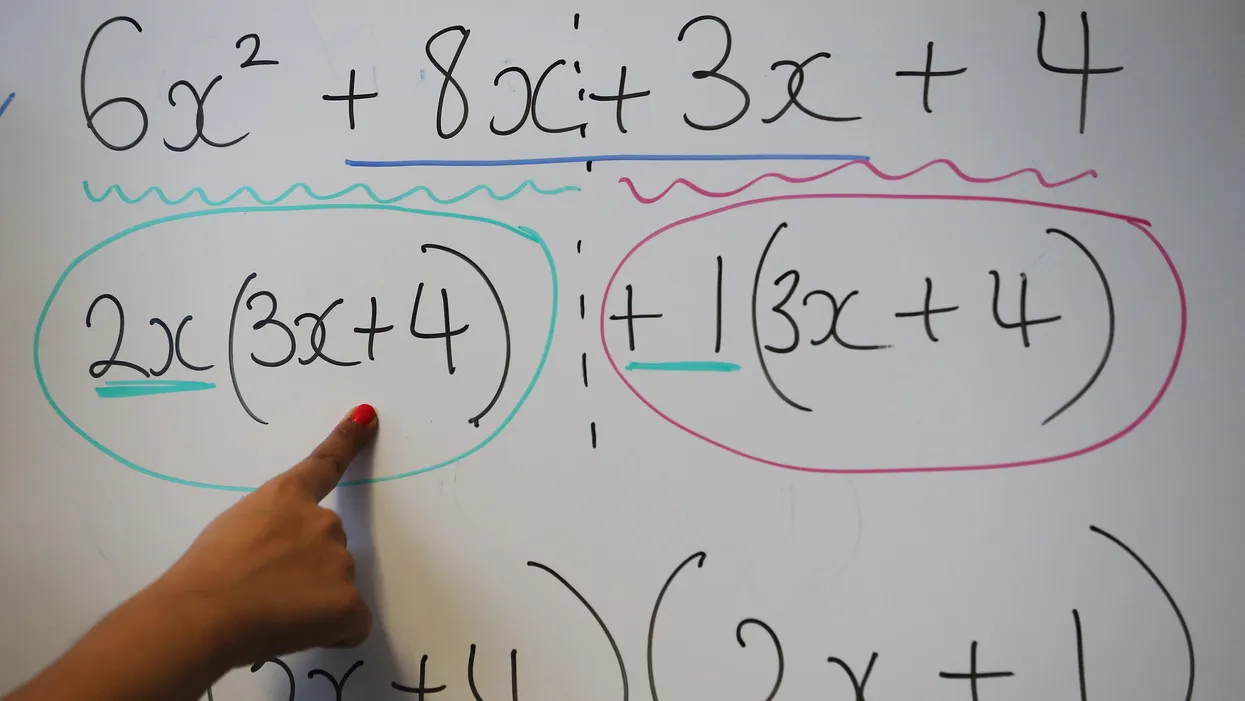 6x² + 8x + 3x + 4
2x(3x+4) + 1(3x + 4)
(3x+4)(2x+1)